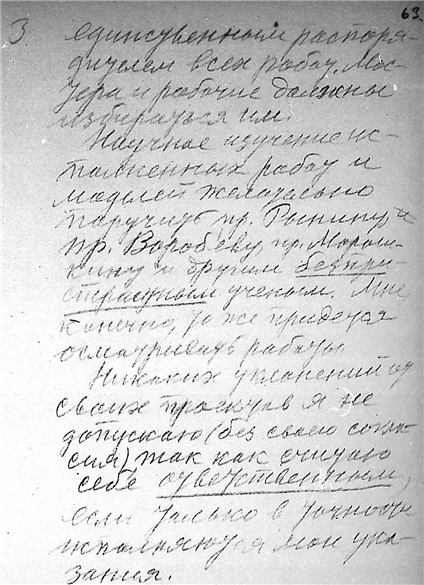 63
3 единственным распоря-
дителем всех работ. Мас-
тера и рабочие должны
избираться им.
Научное изучение ис-
полненных работ и
моделей желательно
поручить пр. Рынину и
пр. Воробьеву, пр. Морош-
кину и другим беспри-
страстным ученым. Мне,
конечно, то же придется
осматривать работы.
Никаких уклонений от
своих проектов я не
допускаю (без своего согла-
сия) так как считаю
себя ответственным,
если только в точности
исполняются мои ука-
зания.